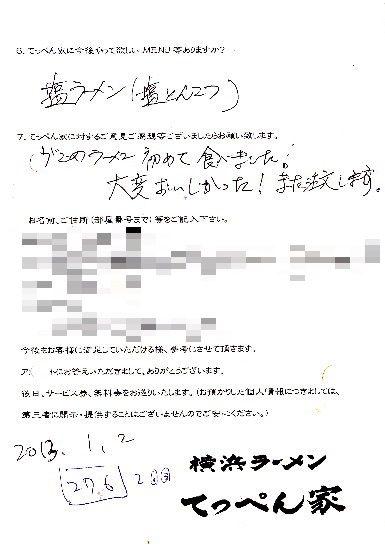 6. てっぺん家に今後やって欲しい MENU 等ありますか?
塩ラーメン(塩とんこつ)
7. てっぺん家に対するご意見ご感想等ございましたらお願い致します。
のラーメン 初めて食べました。
大変おいしかった! また注文します。
お名前、ご住所(部屋番号まで)等をご記入下さい。
今後もお客様に満足していただける様、参考にさせて頂きます。
にお答えいただきまして、ありがとうございます。
後日、サービス券、無料券をお送りいたします。(お預かりした個人情報につきましては、
第三者に開示・提供することはございませんのでご安心ください。)
2013. 1. 2
276 2回目
横浜ラーメン
てっぺん家